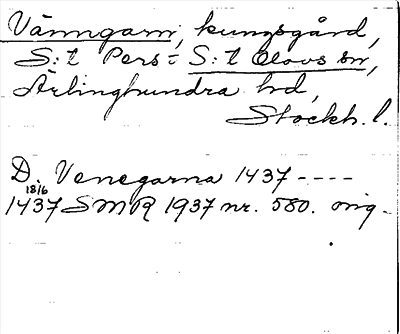 Vänngarn, kungsgård,
S:t Pers = S:t Olovs sn,
Ärlinghundra hd,
Stockh. l.
D. Venegarna 1437 ----
18/6
1437 SMR 1937 nr. 580. orig.